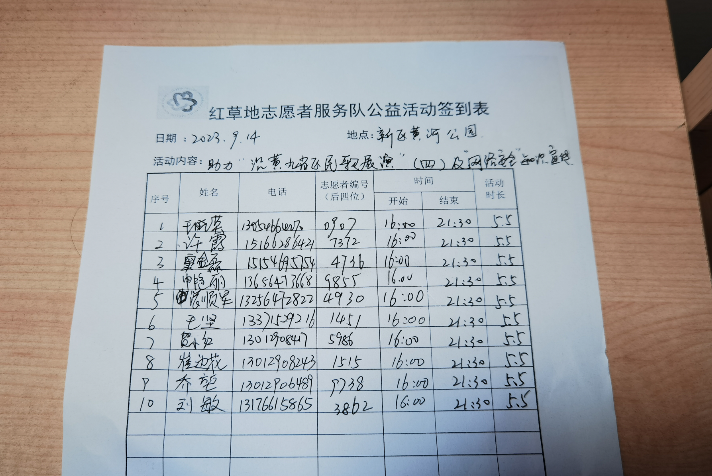 红草地志愿者服务队公益活动签到表
日期：2023.9.14 地点：新区黄河公园
活动内容：助力"沿黄九省区民歌展演"（四）及"网络安全"知识宣传
序号 姓名 电话 志愿者编号（后四位） 时间 开始 结束 活动时长
1 0907 16:00 21:30 5.5
2 许霞 15166286421 7372 16:00 21:30 5.5
3 15154695754 4736 16:00 21:30 5.5
4 13656477668 9855 16:00 21:30 5.5
5 13256472822 4930 16:00 21:30 5.5
6 王坚 13371529216 1451 16:00 21:30 5.5
7 13012908447 5986 16:00 21:30 5.5
8 13012908243 1515 16:00 21:30 5.5
9 乔 13012906489 9738 16:00 21:30 5.5
10 刘敏 13176615865 3862 16:00 21:30 5.5